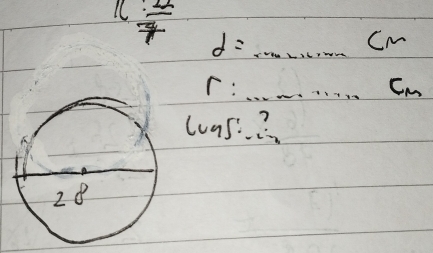 π : 22/7
d = ............ cm
r : ............ cm
luas....?
28